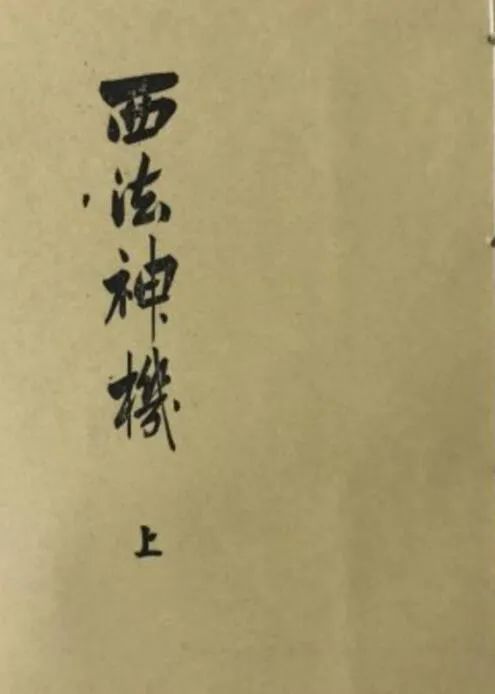 西法神機
上